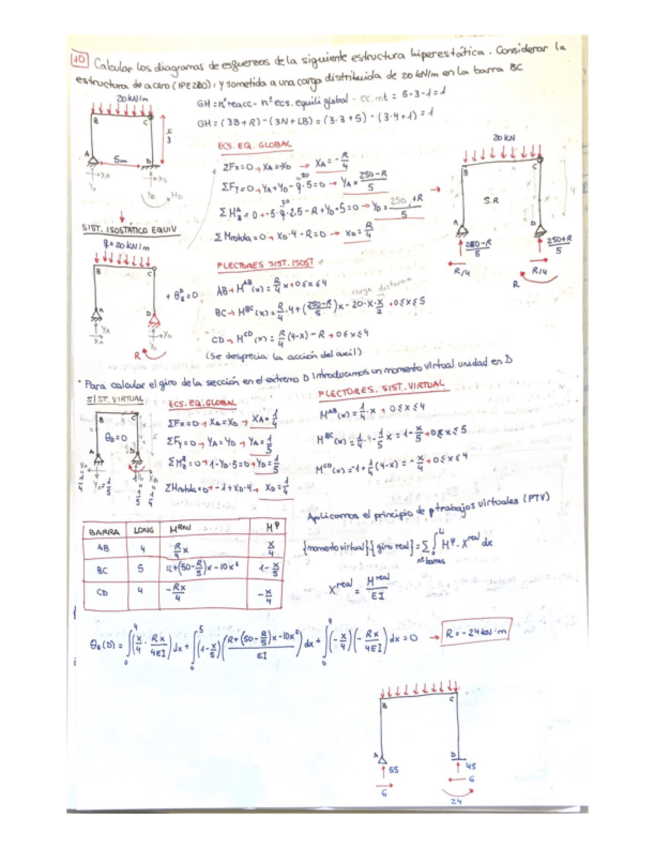 10 Calcular los diagramas de esfuerzos de la siguiente estructura hiperestática. Considerar la
estructura de acero (IPE 280), y sometida a una carga distribuida de 20 kN/m en la barra BC
20 kN/m
B C
A D
5m
XA
YA
XD
YD
MD
GH = nº reacc - nº ecs. equili global - ec. rot = 5-3-1 = 1
GH = (3B+R) - (3N+LB) = (3·3+5) - (3·4+1) = 1
ECS. EQ. GLOBAL
ΣFx=0 → XA=XD → XA = R/4
ΣFy=0 → YA+YD-q·5=0 → YA = 250-R/5
20
ΣM =0 → -5·q·2.5-R+YD·5=0 → YD = 250+R/5
ΣMrotula=0 → XD·4-R=0 → XD = R/4
20 kN
B C
S.R
A D
250-R/5
250+R/5
R/4
R/4
R
SIST. ISOSTÁTICO EQUIV
q=20 kN/m
B C
A D
YA
XA
YD
XD
R
FLECTORES SIST. ISOST
AB → M^AB(x) = R/4 x → 0≤x≤4
BC → M^BC(x) = R/4·4+(250-R/5)x-20·x·x/2 → 0≤x≤5
CD → M^CD(x) = R/4(4-x)-R → 0≤x≤4
(Se desprecia la acción del axil)
* Para calcular el giro de la sección en el extremo D introducimos un momento virtual unidad en D
SIST. VIRTUAL
B C
θD=0
A D
ECS. EQ. GLOBAL
ΣFx=0 → XA=XD → XA=1/4
ΣFy=0 → YA=YD → YA=1/5
ΣM =0 → 1-YD·5=0 → YD=1/5
ΣMrotula=0 → -1+XD·4 → XD=1/4
FLECTORES. SIST. VIRTUAL
M^AB(x)=1/4·x → 0≤x≤4
M^BC(x)=1/4·4-1/5 x=1-x/5 → 0≤x≤5
M^CD(x)=-1+1/4(4-x)=-x/4 → 0≤x≤4
Aplicamos el principio de trabajos virtuales (PTV)
BARRA LONG M^Real M^φ
AB 4 R/4 x x/4
BC 5 R+(50-R/5)x-10x² 1-x/5
CD 4 -Rx/4 -x/4
{momento virtual}{giro real}=Σ∫M^φ·X^real dx
nº barras
X^real = M^real/EI
θR(D) = ∫(x/4·Rx/4EI)dx + ∫(1-x/5)(R+(50-R/5)x-10x²/EI)dx + ∫(-x/4)(-Rx/4EI)dx = 0 → R=-24 kN·m
B C
A D
55 45
6 6
24